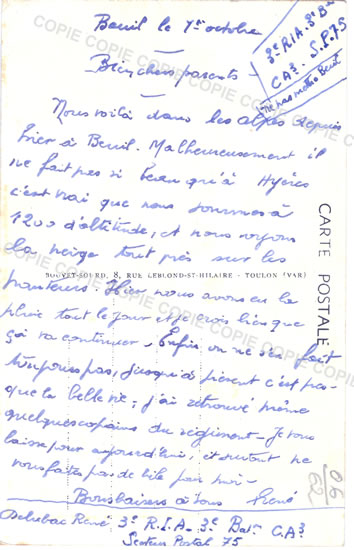 Beuil le 1er octobre
3e R.I.A. 3e Bn
CA3. S.P. 75
ne pas mettre Beuil
Bien chers parents -
Nous voilà dans les alpes depuis
hier à Beuil. Malheureusement il
ne fait pas si beau qu'à Hyères
c'est vrai que nous sommes à
1200 d'altitude, et nous voyons
la neige tout près sur les
SOUVET-SOURD, 8, RUE LEBLOND-ST-HILAIRE - TOULON (VAR)
CARTE POSTALE
hauteurs. Hier nous avons eu la
pluie tout le jour et je crois bien que
ça va continuer. Enfin on ne s'en fait
toujours pas, jusqu'à présent c'est pres-
que la belle vie, j'ai retrouvé même
quelques copains du régiment - Je vous
laisse pour aujourd'hui, et surtout ne
vous faites pas de bile pour moi -
Bons baisers à tous René
René 3e R.I.A - 3e Batn CA3
Secteur Postal 75
06
62
COPIE COPIE COPIE COPIE